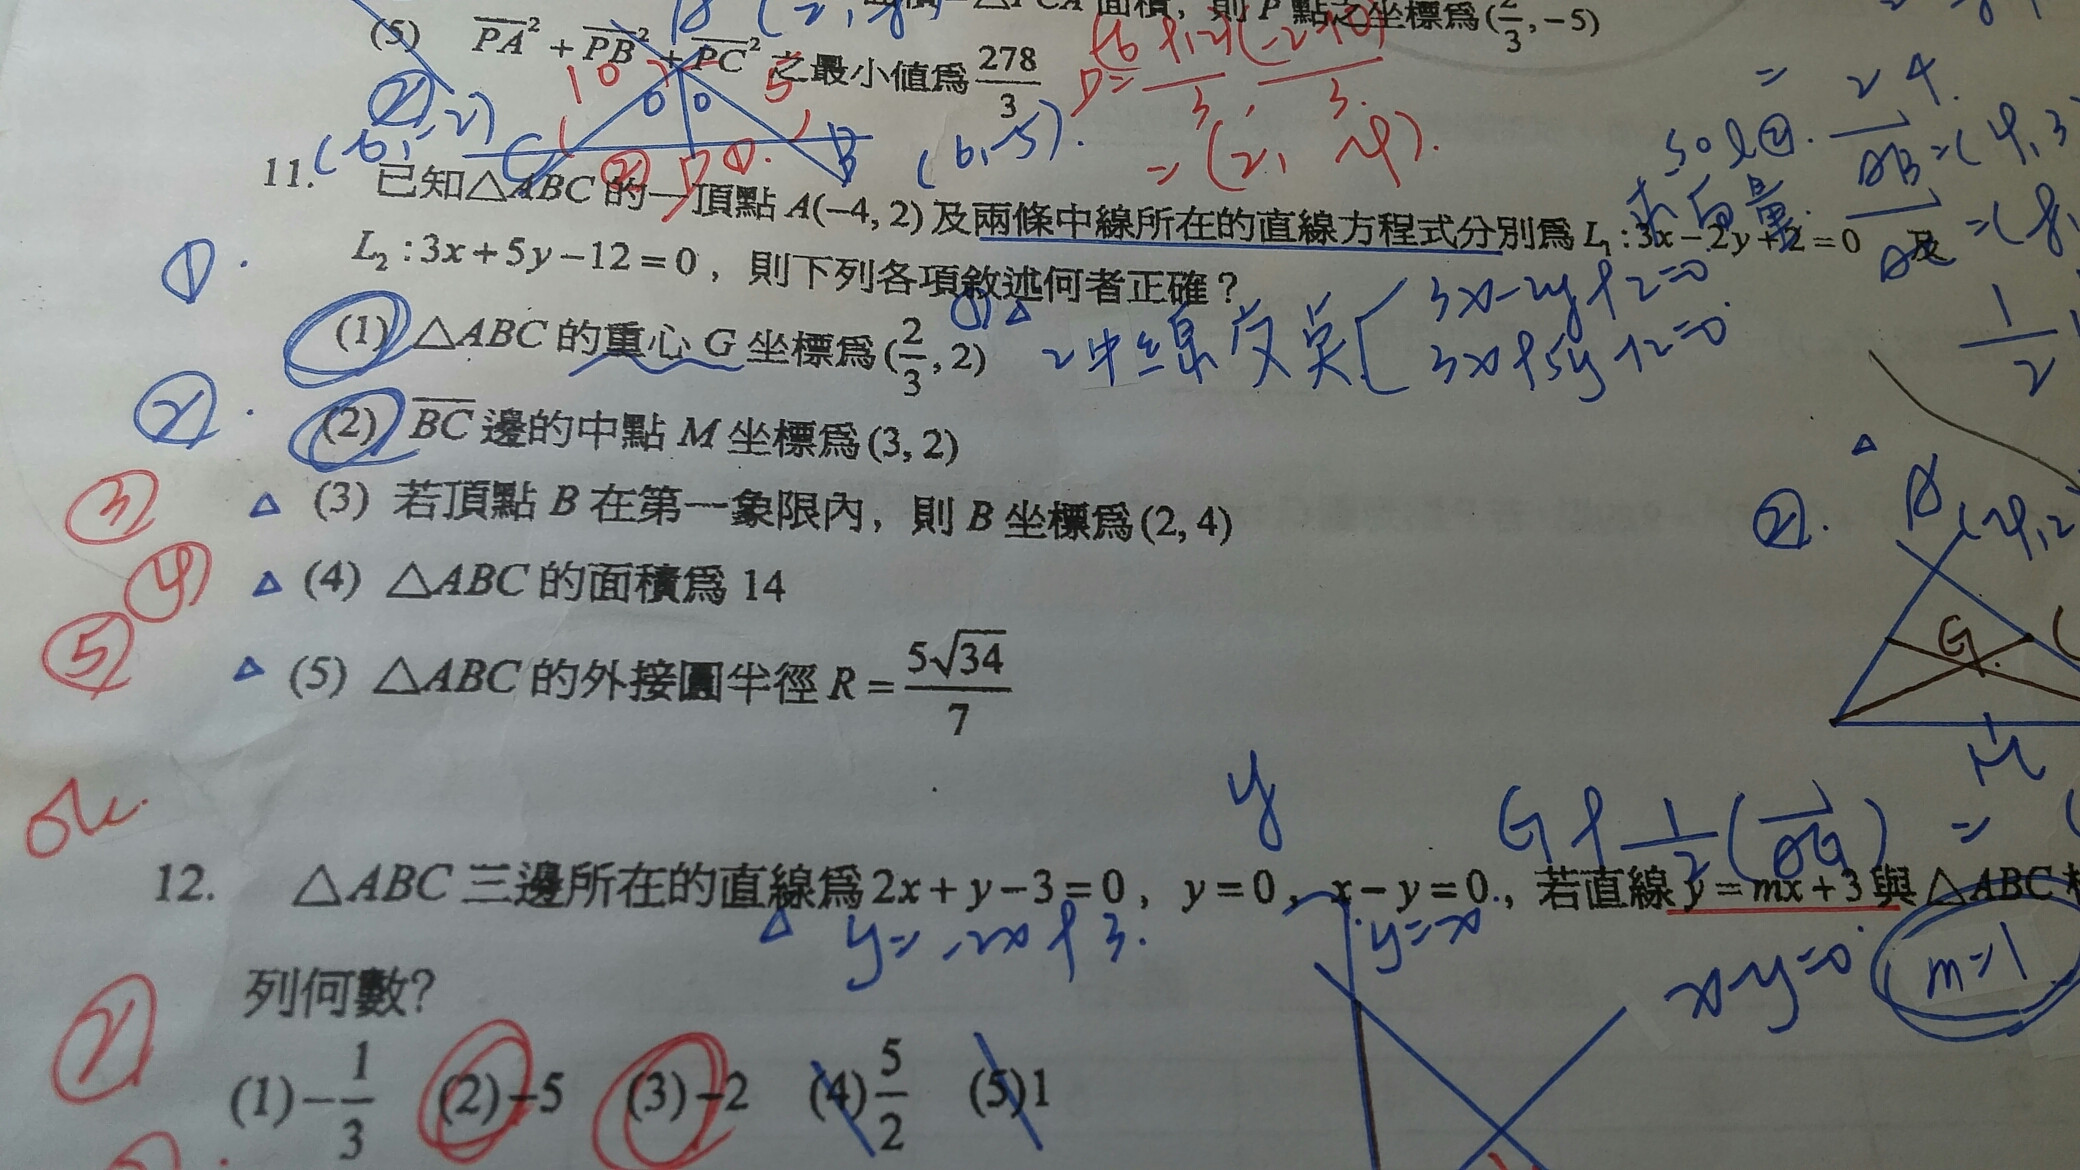 (5) PA² + PB² + PC² 之最小値爲 278/3
面積, 則 P 點之坐標爲 (2/3, −5)
11. 已知△ABC 的一頂點 A(−4, 2) 及兩條中線所在的直線方程式分別爲 L₁ : 3x − 2y + 2 = 0 及
L₂ : 3x + 5y − 12 = 0 , 則下列各項敘述何者正確？
(1) △ABC 的重心 G 坐標爲 (2/3, 2)
2中線交点 { 3x−2y+2=0
3x+5y−12=0
(2) BC 邊的中點 M 坐標爲 (3, 2)
(3) 若頂點 B 在第一象限內, 則 B 坐標爲 (2, 4)
(4) △ABC 的面積爲 14
(5) △ABC 的外接圓半徑 R = 5√34/7
(6,−2)
(6,−5).
= (2, −4).
= 24.
sol②. AB=(4,3
求向量.
①.
②.
③
④
⑤
②. A(−4,2
G
M
G + 1/2(AG) =
ok.
y
12. △ABC 三邊所在的直線爲 2x + y − 3 = 0 , y = 0 , x − y = 0 , 若直線 y = mx + 3 與 △ABC
y=−2x+3.
y=x
x−y=0
m=1
列何數?
(1) −1/3 (2) −5 (3) −2 (4) 5/2 (5) 1